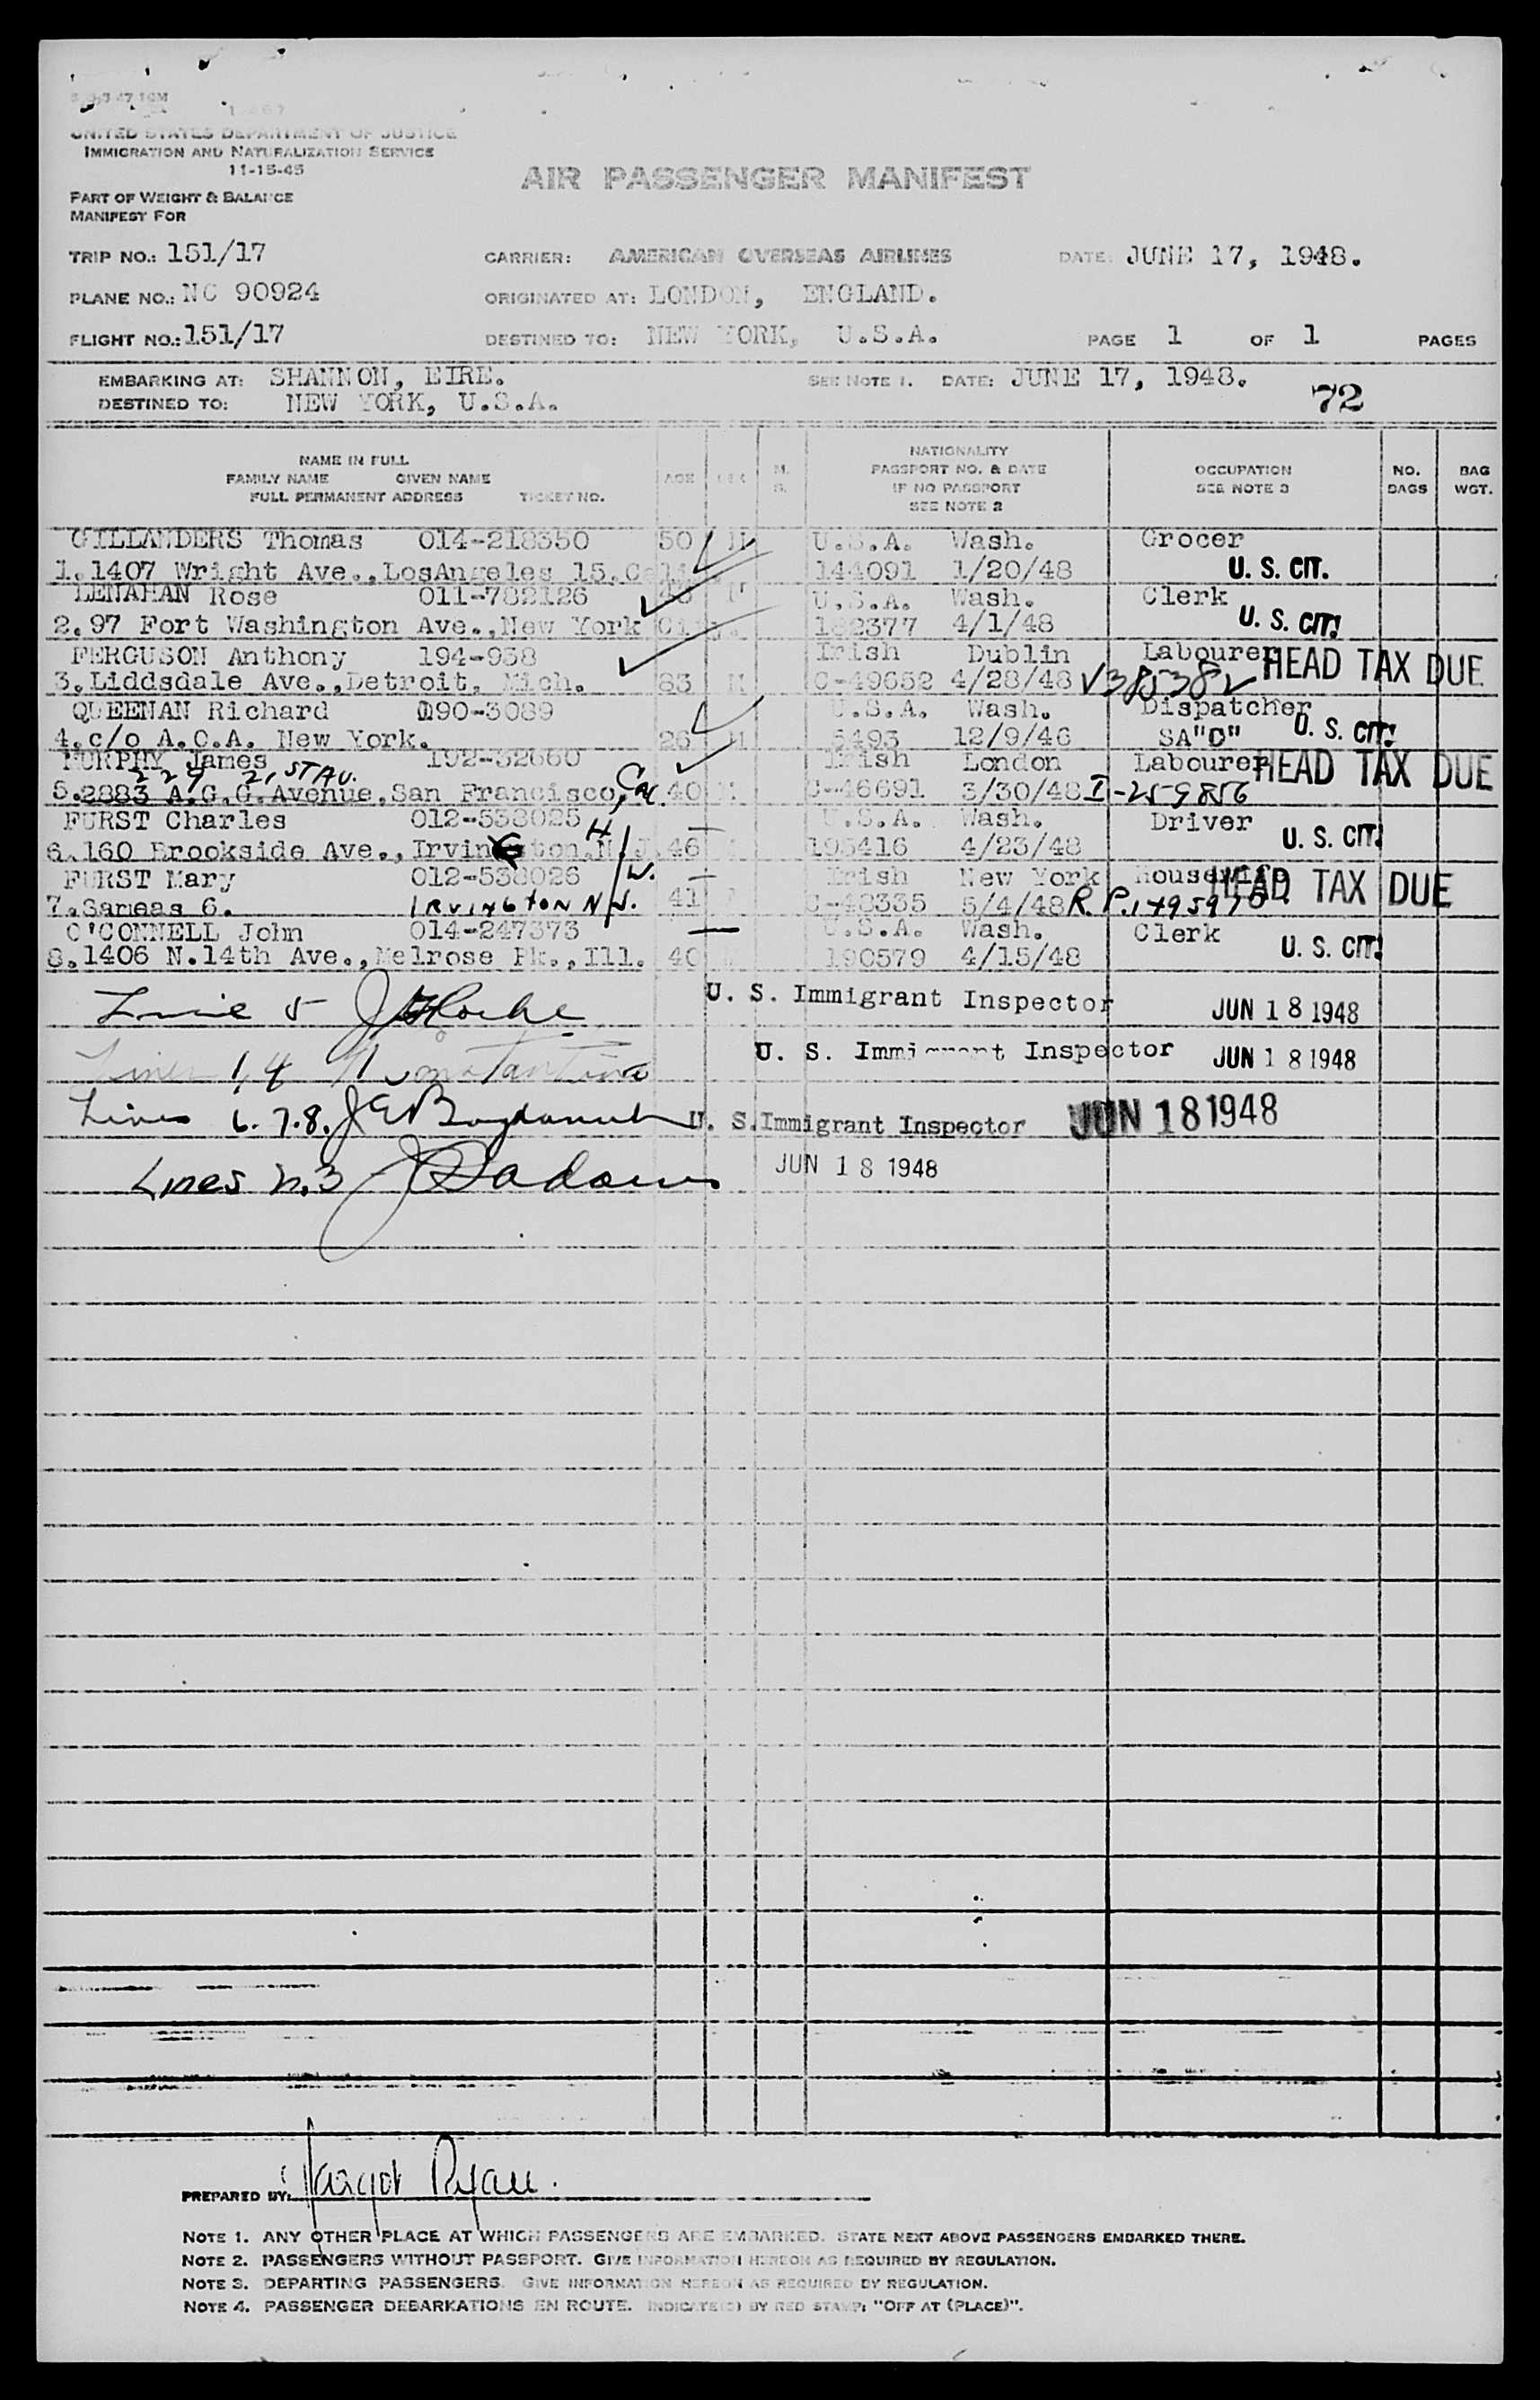 UNITED STATES DEPARTMENT OF JUSTICE
IMMIGRATION AND NATURALIZATION SERVICE
11-15-45
AIR PASSENGER MANIFEST
PART OF WEIGHT & BALANCE
MANIFEST FOR
TRIP NO.: 151/17 CARRIER: AMERICAN OVERSEAS AIRLINES DATE: JUNE 17, 1948.
PLANE NO.: NC 90924 ORIGINATED AT: LONDON, ENGLAND.
FLIGHT NO.: 151/17 DESTINED TO: NEW YORK, U.S.A. PAGE 1 OF 1 PAGES
EMBARKING AT: SHANNON, EIRE. SEE NOTE 1. DATE: JUNE 17, 1948.
DESTINED TO: NEW YORK, U.S.A. 72
NAME IN FULL
FAMILY NAME GIVEN NAME
FULL PERMANENT ADDRESS TICKET NO.
AGE SEX M. S.
NATIONALITY
PASSPORT NO. & DATE
IF NO PASSPORT
SEE NOTE 2
OCCUPATION
SEE NOTE 3
NO. BAGS
BAG WGT.
GILLANDERS Thomas 014-218350 50 M U.S.A. Wash. Grocer
1.1407 Wright Ave.,LosAngeles 15.Cali. 144091 1/20/48 U. S. CIT.
LENAHAN Rose 011-782126 F U.S.A. Wash. Clerk
2.97 Fort Washington Ave.,New York City. 4/1/48 U. S. CIT.
FERGUSON Anthony 194-938 Irish Dublin Labourer HEAD TAX DUE
3.Liddsdale Ave.,Detroit, Mich. 83 M C-49652 4/28/48
QUEENAN Richard 090-3089 U.S.A. Wash. Dispatcher
4.c/o A.O.A. New York. 26 M 5493 12/9/46 SA"C" U. S. CIT.
MURPHY James 192-32660 Irish London Labourer HEAD TAX DUE
229 21 ST AV.
5.2883 A.G.G.Avenue.San Francisco, Cal 40 M C-46691 3/30/48 I-259856
FURST Charles 012-538025 U.S.A. Wash. Driver
6.160 Brookside Ave., Irvington.N.J. 46 195416 4/23/48 U. S. CIT.
FURST Mary 012-538026 Irish New York Housewife HEAD TAX DUE
7.Sameas 6. IRVINGTON N.J. 41 F C-48335 5/4/48 R.P.
O'CONNELL John 014-247373 U.S.A. Wash. Clerk
8.1406 N.14th Ave.,Melrose Pk.,Ill. 40 M 190579 4/15/48 U. S. CIT.
Line 5 U. S. Immigrant Inspector JUN 18 1948
Lines 1,4 U. S. Immigrant Inspector JUN 18 1948
Lines 6.7.8. U. S. Immigrant Inspector JUN 18 1948
Lines 2.3 JUN 18 1948
PREPARED BY: Margot Ryan.
NOTE 1. ANY OTHER PLACE AT WHICH PASSENGERS ARE EMBARKED. STATE NEXT ABOVE PASSENGERS EMBARKED THERE.
NOTE 2. PASSENGERS WITHOUT PASSPORT. GIVE INFORMATION HEREON AS REQUIRED BY REGULATION.
NOTE 3. DEPARTING PASSENGERS. GIVE INFORMATION HEREON AS REQUIRED BY REGULATION.
NOTE 4. PASSENGER DEBARKATIONS EN ROUTE. INDICATE(D) BY RED STAMP: "OFF AT (PLACE)".